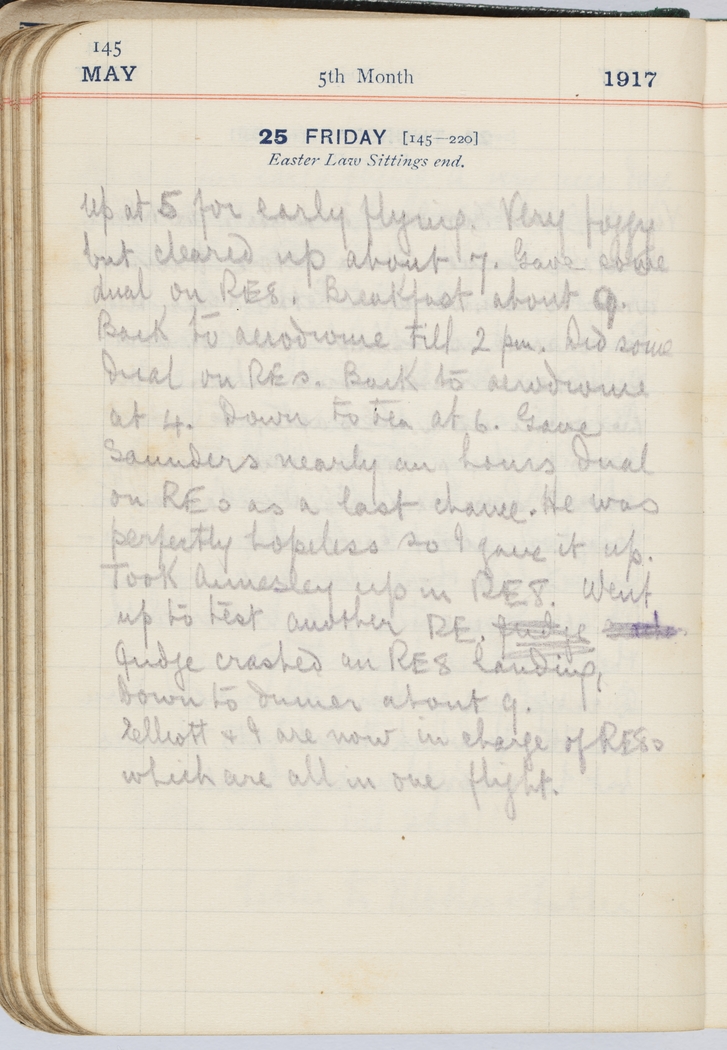 145
MAY 5th Month 1917
25 FRIDAY [145—220]
Easter Law Sittings end.
up at 5 for early flying. Very foggy
but cleared up about 7. Gave some
dual on RE8. Breakfast about 9.
Back to aerodrome till 2 pm. Did some
Dual on REs. Back to aerodrome
at 4. Down to tea at 6. Gave
Saunders nearly an hours Dual
on REs as a last chance. He was
perfectly hopeless so I gave it up.
Took Annesley up in RE8. Went
up to test another RE. Judge
Judge crashed an RE8 landing,
Down to dinner about 9.
Elliott & I are now in charge of RE8s
which are all in one flight.